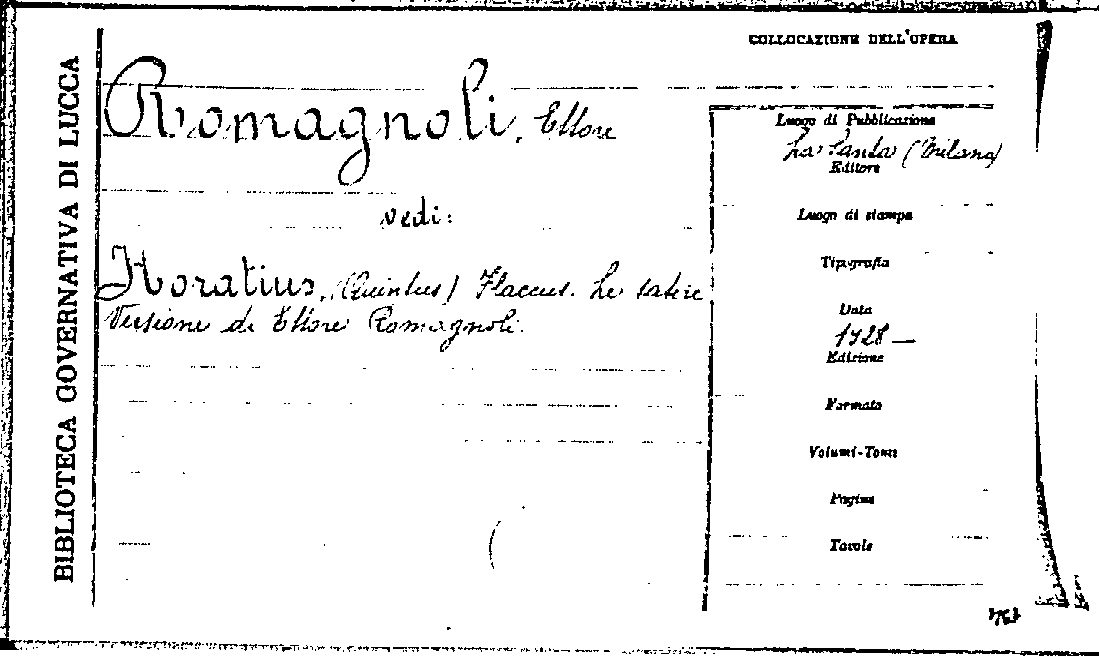 BIBLIOTECA GOVERNATIVA DI LUCCA
COLLOCAZIONE DELL'OPERA
Romagnoli, Ettore
vedi:
Horatius, (Quintus) Flaccus. Le satire
Versione di Ettore Romagnoli.
Luogo di Pubblicazione
La Santa (Milano)
Editore
Luogo di stampa
Tipografia
Data
1928 —
Edizione
Formato
Volumi-Tomi
Pagine
Tavole